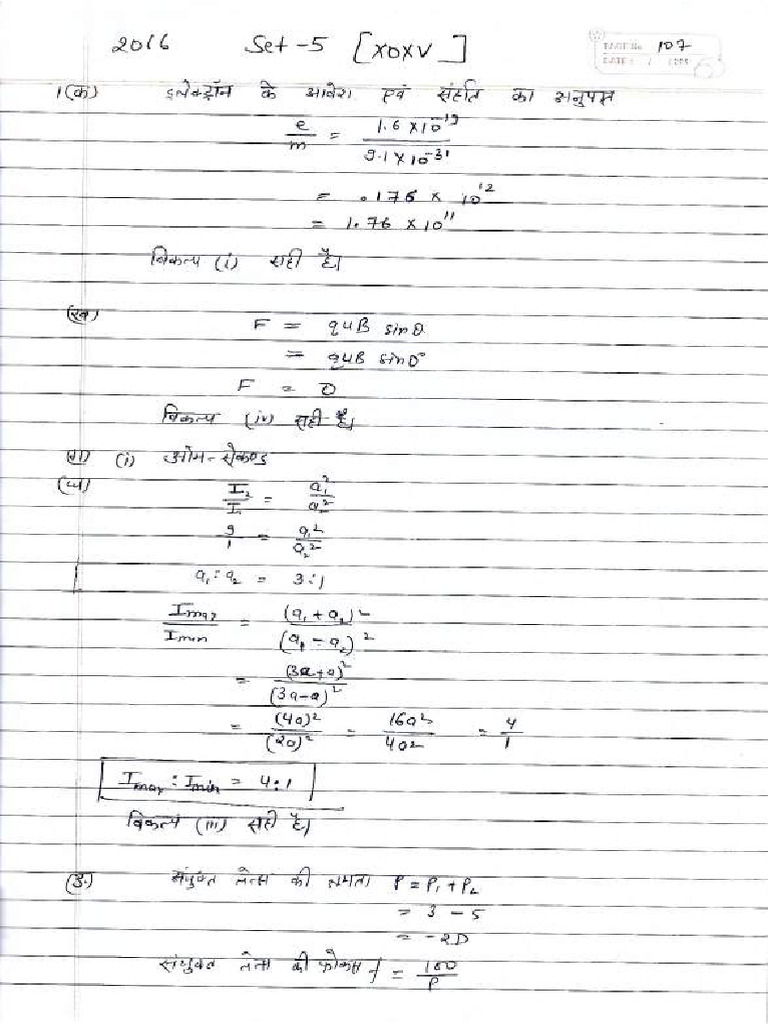 2016 Set-5 [XOXV]
PAGE No. 107
DATE: / /
1(क) इलेक्ट्रॉन के आवेश एवं संहति का अनुपात
e/m = 1.6 × 10^-19 / 9.1 × 10^-31
= .176 × 10^12
= 1.76 × 10^11
विकल्प (i) सही है।
(ख) F = quB sinθ
= quB sin0°
F = 0
विकल्प (iv) सही है।
(ग) (i) ओम-सेकण्ड
(घ) I₁/I₂ = a₁²/a₂²
9/1 = a₁²/a₂²
a₁ : a₂ = 3:1
Imax/Imin = (a₁ + a₂)²/(a₁ - a₂)²
= (3a+a)²/(3a-a)²
= (4a)²/(2a)² = 16a²/4a² = 4/1
Imax : Imin = 4:1
विकल्प (iii) सही है।
(ङ) संयुक्त लेन्स की क्षमता P = P₁ + P₂
= 3 - 5
= -2D
संयुक्त लेन्स की फोकस f = 100/P